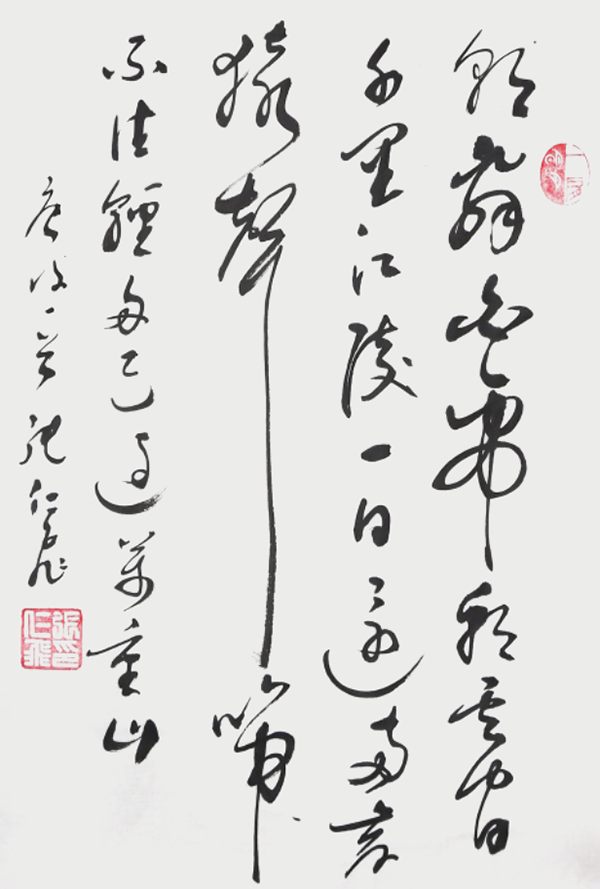 朝辭白帝彩雲間
千里江陵一日還兩岸
猿聲啼
不住輕舟已過萬重山
唐詩一首 張仁飛
張印仁飛